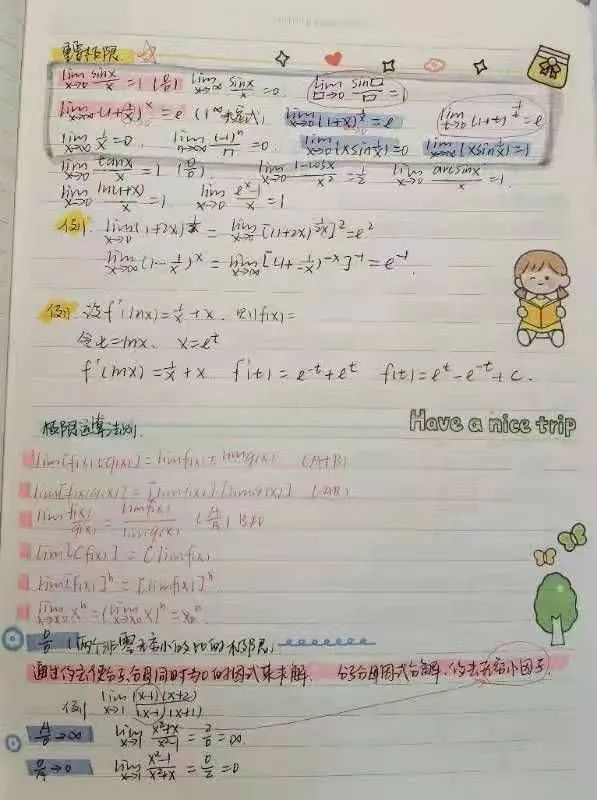 重要极限
lim x→0 sinx/x = 1 (0/0) lim x→∞ sinx/x = 0. lim □→0 sin□/□ = 1
lim x→∞ (1+1/x)^x = e (1^∞未定式) lim x→0 (1+x)^(1/x) = e lim t→0 (1+t)^(1/t) = e
lim x→∞ 1/x = 0. lim n→∞ (-1)^n/n = 0. lim x→0 (xsin1/x) = 0 lim x→∞ (xsin1/x) = 1
lim x→0 tanx/x = 1 (0/0). lim x→0 (1-cosx)/x² = 1/2 lim x→0 arcsinx/x = 1.
lim x→0 ln(1+x)/x = 1. lim x→0 (e^x-1)/x = 1
例. lim x→0 (1+2x)^(1/x) = lim x→0 [(1+2x)^(1/2x)]² = e²
lim x→∞ (1-1/x)^x = lim x→∞ [(1+1/-x)^(-x)]^-1 = e^-1.
例 设f'(lnx) = 1/x + x. 则f(x) =
令t=lnx. x=e^t
f'(lnx) = 1/x + x f'(t) = e^-t + e^t f(t) = e^t - e^-t + c.
Have a nice trip
极限运算法则.
lim[f(x)±g(x)] = limf(x) ± limg(x) (A±B)
lim[f(x)g(x)] = [limf(x)]·[limg(x)] (AB)
lim f(x)/g(x) = limf(x)/limg(x) (A/B) B≠0
lim[Cf(x)] = C limf(x)
lim[f(x)]^n = [limf(x)]^n
lim x→x₀ x^n = (lim x→x₀ x)^n = x₀^n
0/0 (两个非零无穷小的比的极限)
通过约去使分子、分母同时为0的因式来求解. 分子分母因式分解, 约去无穷小因子.
例 lim x→1 (x-1)(x+2)/(x-1)(x+1)
A/0→∞ lim x→1 x²+x/x²-1 = 2/0 = ∞.
0/A→0 lim x→1 x²-1/x²+x = 0/2 = 0